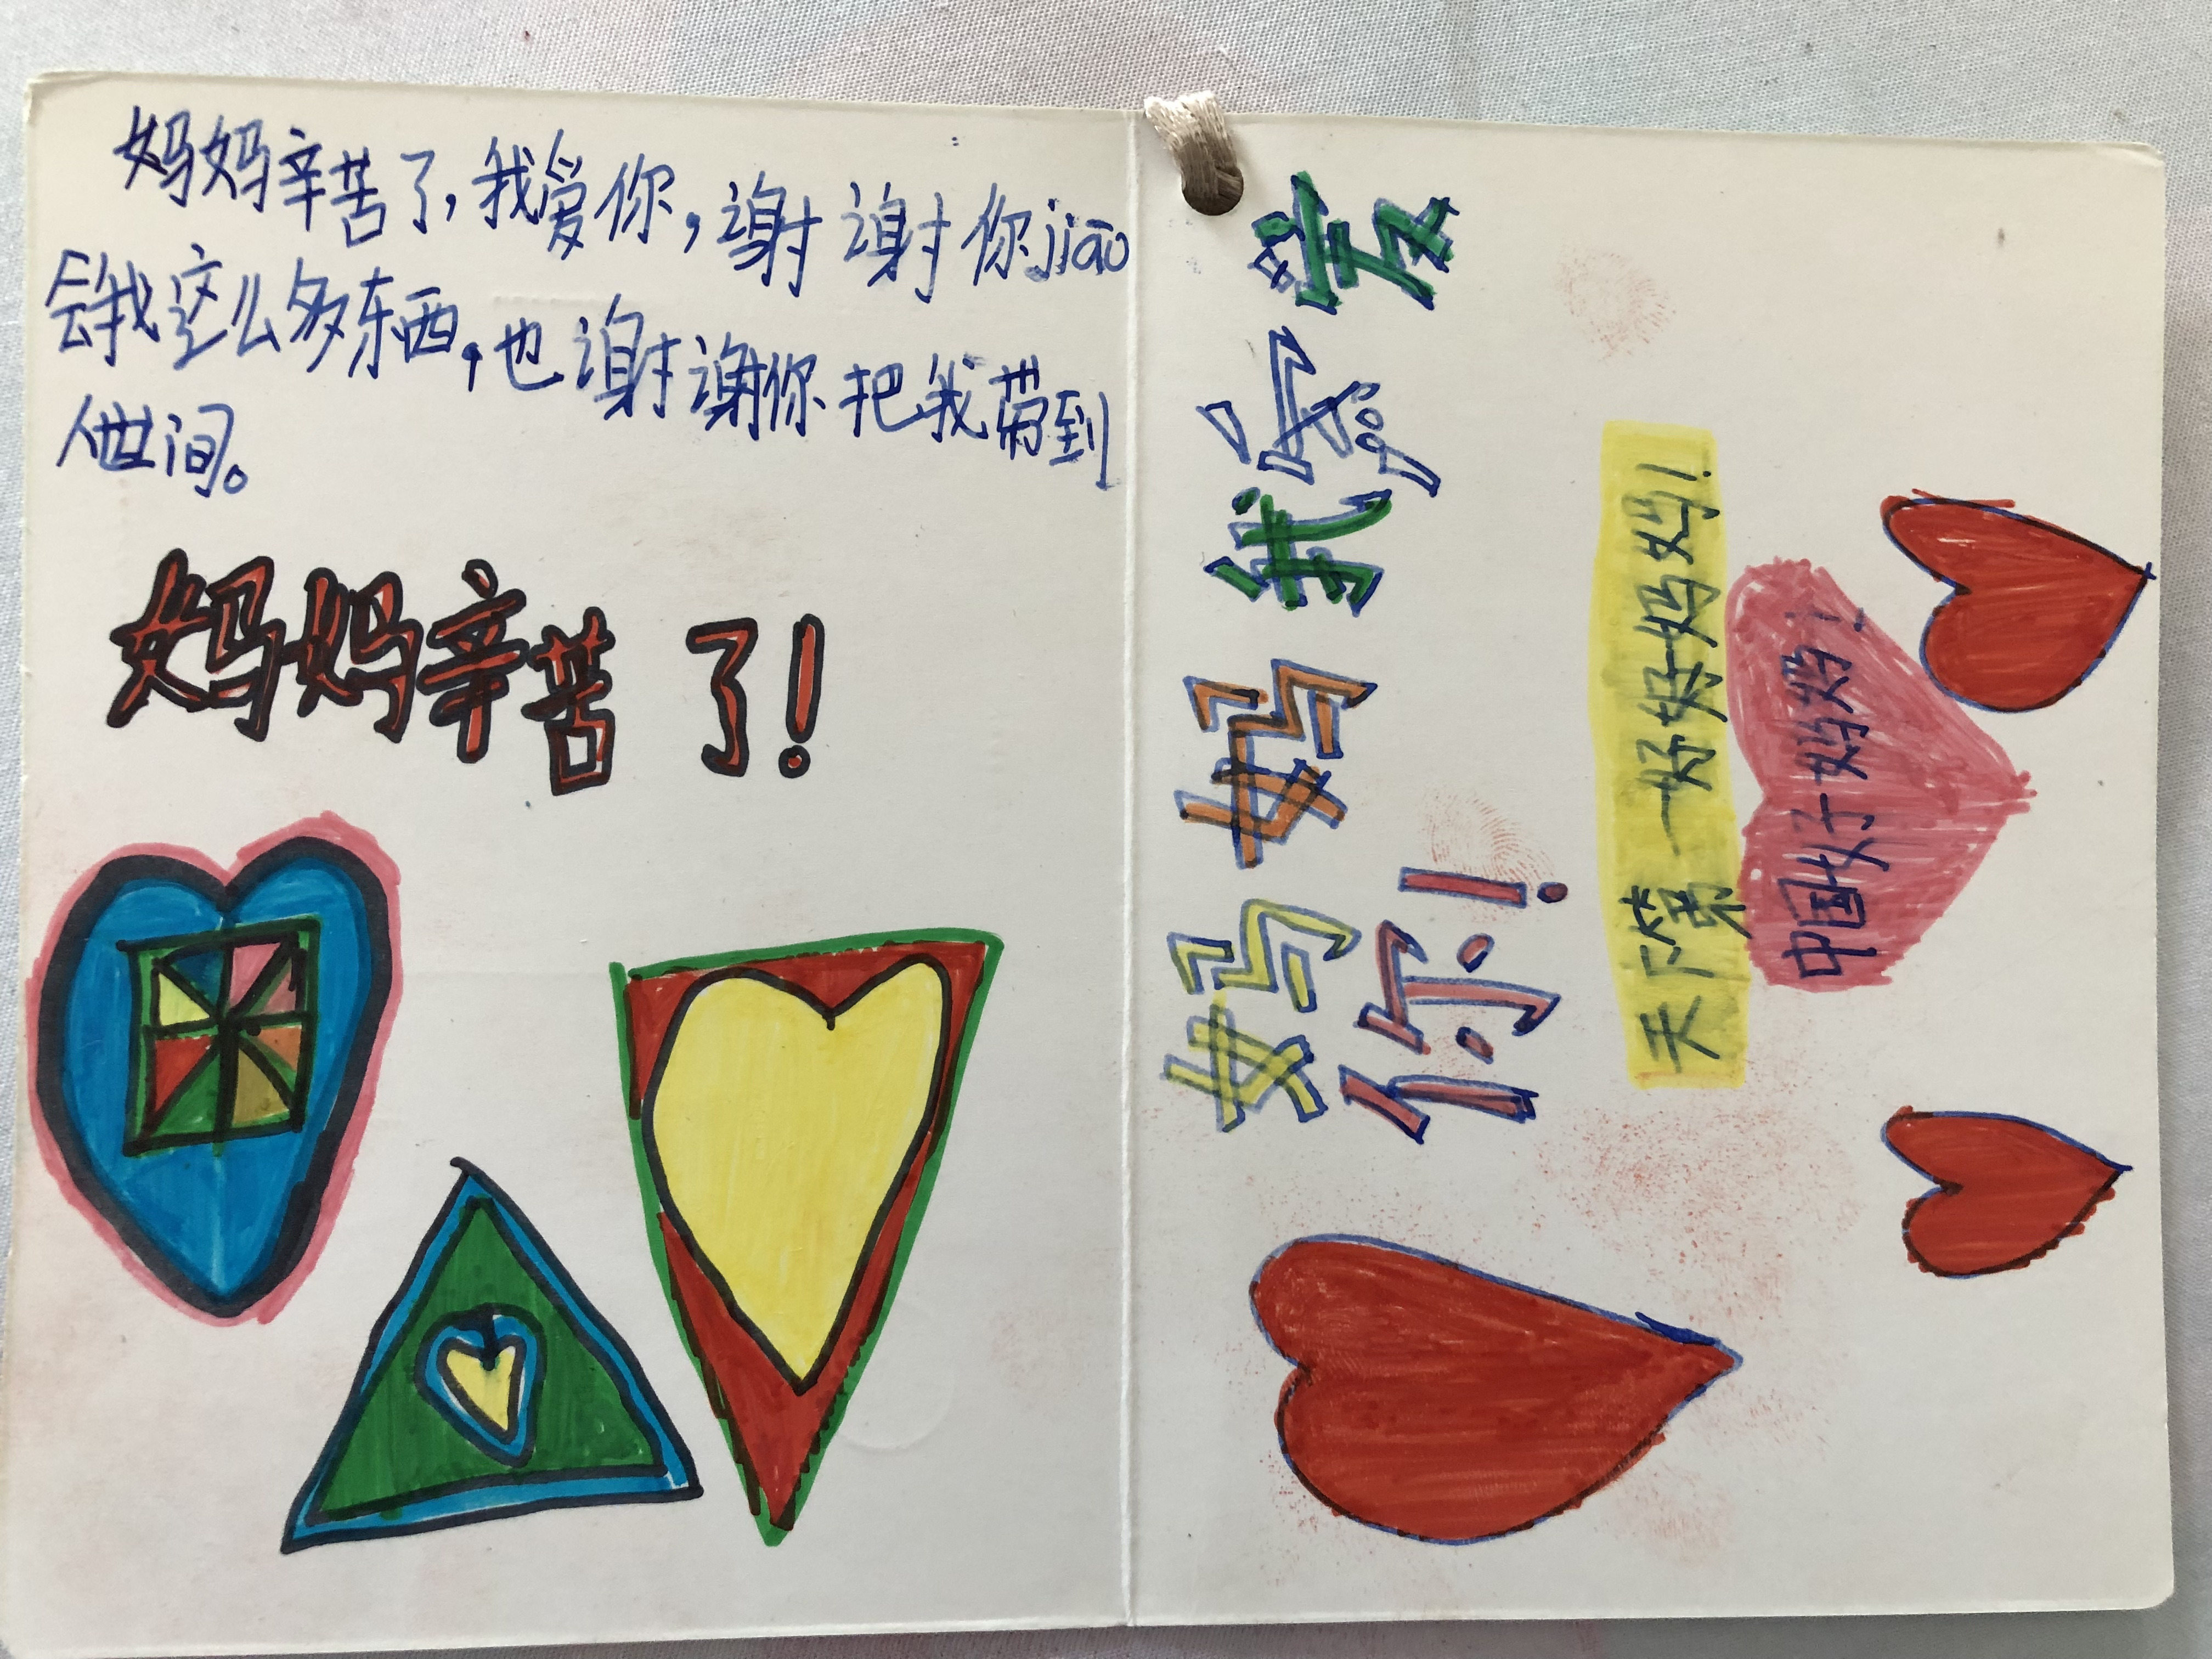 妈妈辛苦了,我爱你,谢谢你jiāo
会我这么多东西,也谢谢你把我带到
人世间。
妈妈辛苦了!
妈妈我爱
你!
天下第一好好妈妈!
中国好妈妈!